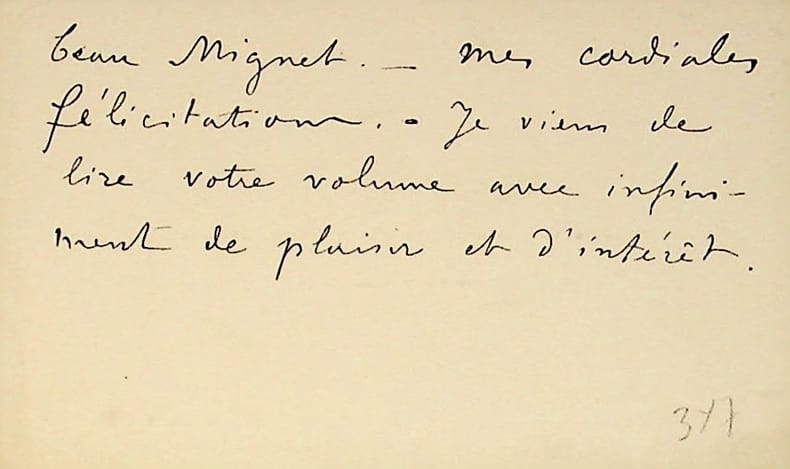 beau Mignet. — mes cordiales
félicitations. - Je viens de
lire votre volume avec infini-
ment de plaisir et d'intérêt.